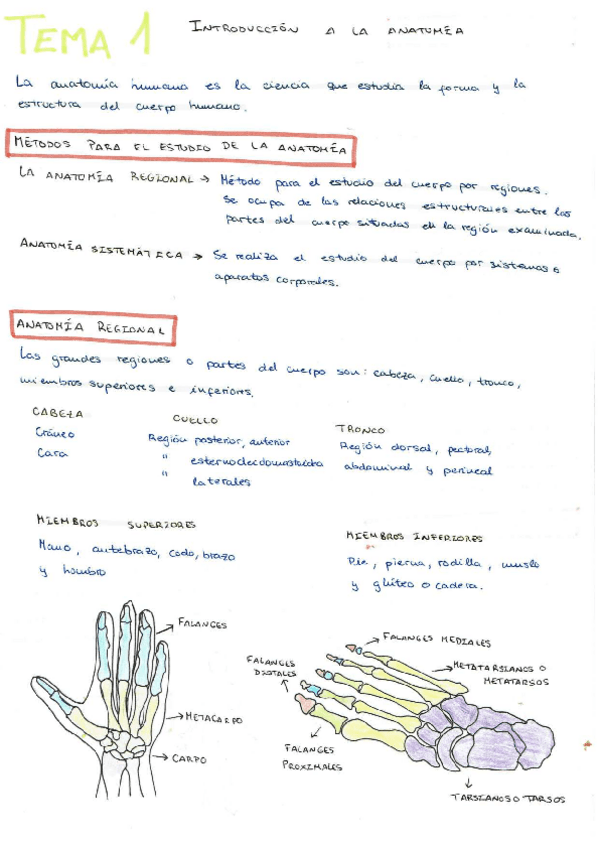 TEMA 1
INTRODUCCIÓN A LA ANATOMÍA
La anatomía humana es la ciencia que estudia la forma y la
estructura del cuerpo humano.
MÉTODOS PARA EL ESTUDIO DE LA ANATOMÍA
LA ANATOMÍA REGIONAL → Método para el estudio del cuerpo por regiones.
Se ocupa de las relaciones estructurales entre las
partes del cuerpo situadas en la región examinada.
ANATOMÍA SISTEMÁTICA → Se realiza el estudio del cuerpo por sistemas o
aparatos corporales.
ANATOMÍA REGIONAL
Las grandes regiones o partes del cuerpo son: cabeza, cuello, tronco,
miembros superiores e inferiores.
CABEZA
Cráneo
Cara
CUELLO
Región posterior, anterior
" esternocleidomastoidea
" laterales
TRONCO
Región dorsal, pectoral,
abdominal y perineal
MIEMBROS SUPERIORES
Mano, antebrazo, codo, brazo
y hombro
MIEMBROS INFERIORES
Pie, pierna, rodilla, muslo
y glúteo o cadera.
FALANGES
METACARPO
CARPO
FALANGES MEDIALES
FALANGES
DISTALES
METATARSIANOS O
METATARSOS
FALANGES
PROXIMALES
TARSIANOS O TARSOS